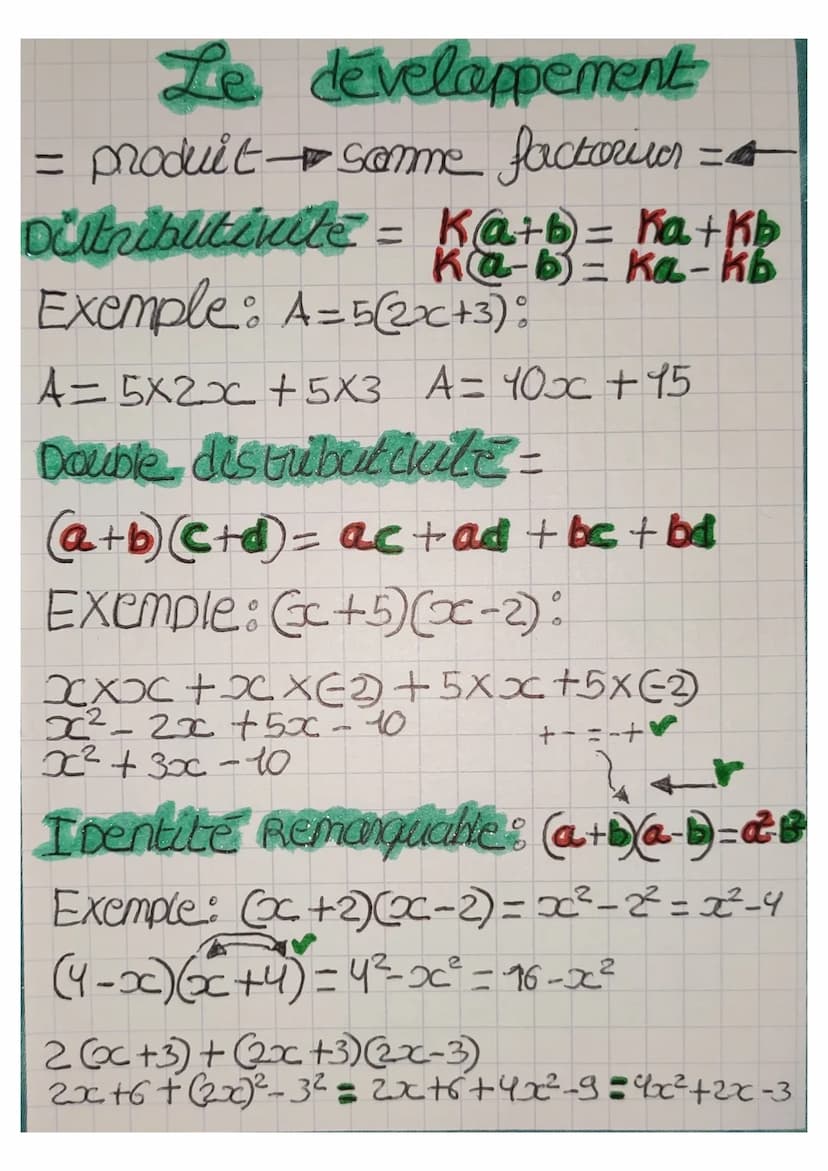 Le développement
= produit → somme factoriser = ←
Distributivité = K(a+b) = Ka+Kb
K(a-b) = Ka-Kb
Exemple: A=5(2x+3):
A= 5×2x + 5×3 A= 10x + 15
Double distributivité =
(a+b)(c+d)= ac + ad + bc + bd
Exemple: (x+5)(x-2):
x×x + x×(-2) + 5×x +5×(-2)
x² - 2x + 5x - 10
+ - = - + ✓
x² + 3x - 10
Identité Remarquable: (a+b)(a-b)=a²-b²
Exemple: (x+2)(x-2) = x²-2² = x²-4
(4-x)(x+4) = 4²-x² = 16-x²
2(x+3)+(2x+3)(2x-3)
2x+6+(2x)²-3² = 2x+6+4x²-9 = 4x²+2x-3